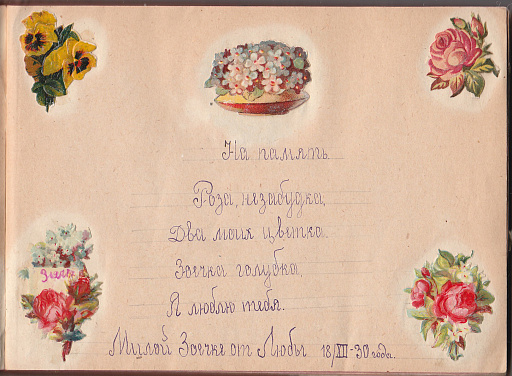 На память
Роза, незабудка,
Два моих цветка.
Зоечка голубка,
Я люблю тебя.
Милой Зоечке от Любы 18/XII-30 года.